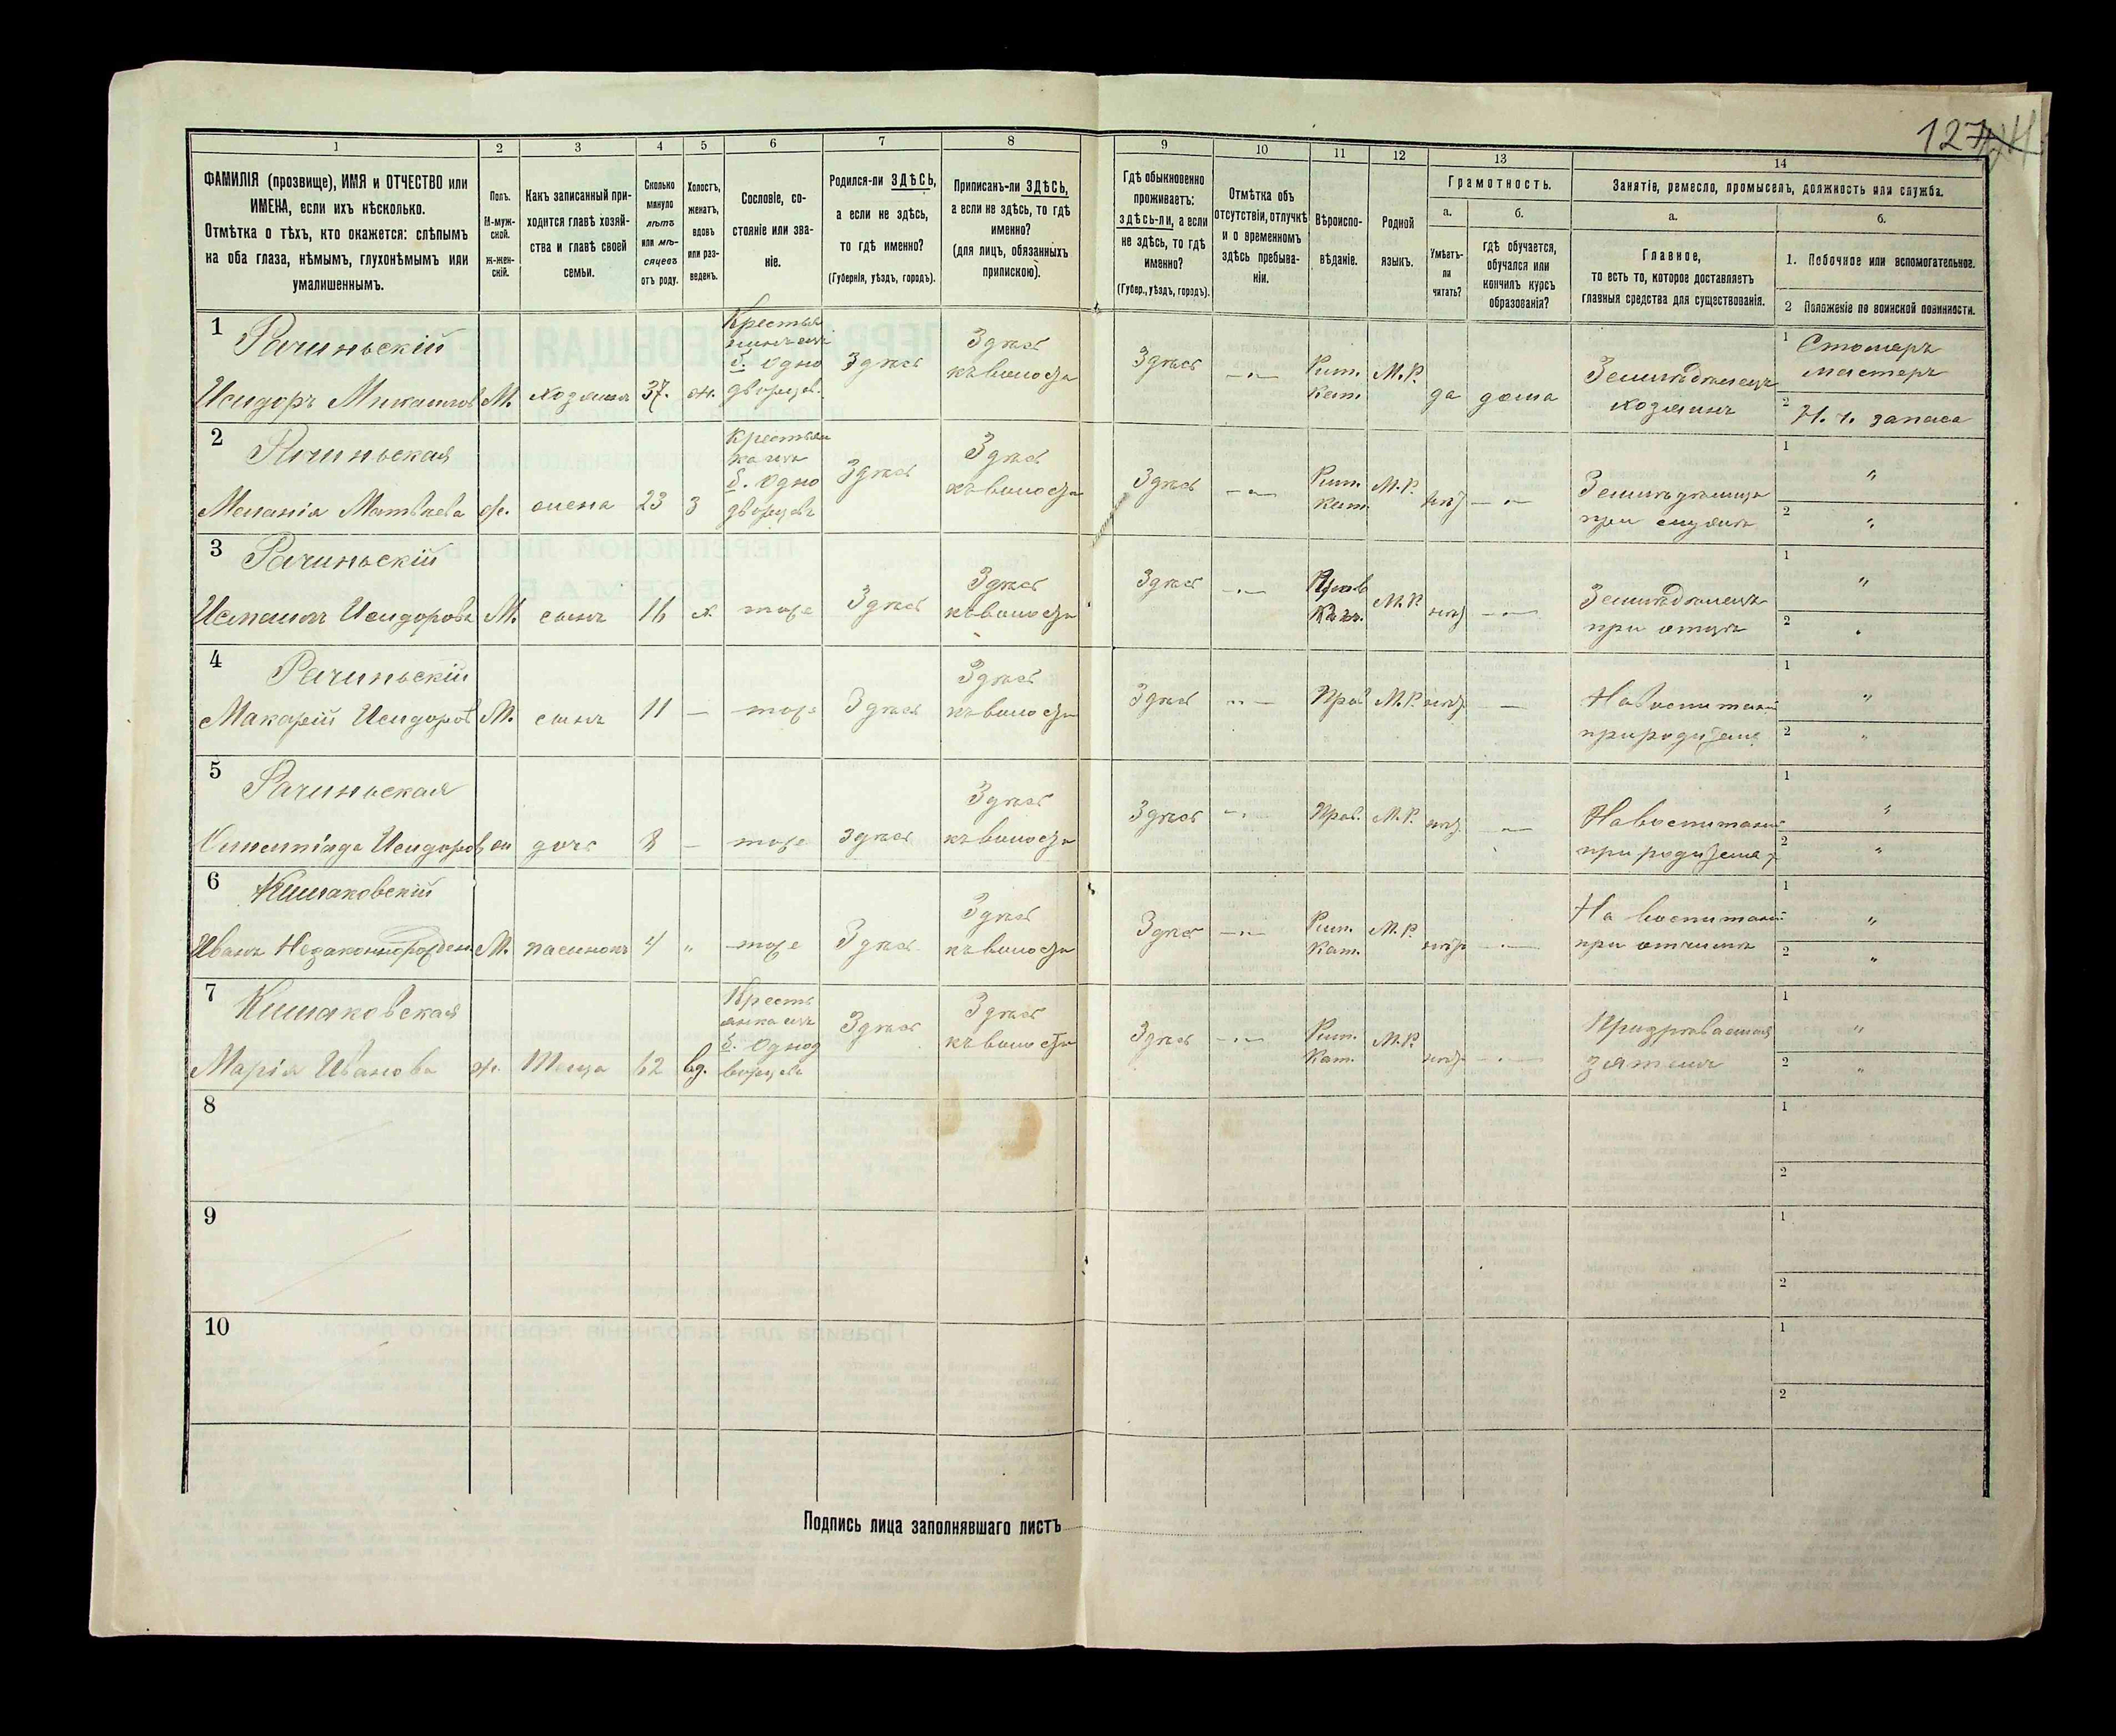 127
1 2 3 4 5 6 7 8 9 10 11 12 13 14
ФАМИЛІЯ (прозвище), ИМЯ и ОТЧЕСТВО или
ИМЕНА, если ихъ нѣсколько.
Отмѣтка о тѣхъ, кто окажется: слѣпымъ
на оба глаза, нѣмымъ, глухонѣмымъ или
умалишеннымъ.
Полъ.
М-муж-
ской.
Ж-жен-
скій.
Какъ записанный при-
ходится главѣ хозяй-
ства и главѣ своей
семьи.
Сколько
минуло
лѣтъ
или мѣ-
сяцевъ
отъ роду.
Холостъ,
женатъ,
вдовъ
или раз-
веденъ.
Сословіе, со-
стояніе или зва-
ніе.
Родился-ли ЗДѢСЬ,
а если не здѣсь,
то гдѣ именно?
(Губернія, уѣздъ, городъ).
Приписанъ-ли ЗДѢСЬ,
а если не здѣсь, то гдѣ
именно?
(для лицъ, обязанныхъ
припискою).
Гдѣ обыкновенно
проживаетъ:
здѣсь-ли, а если
не здѣсь, то гдѣ
именно?
(Губер., уѣздъ, городъ).
Отмѣтка объ
отсутствіи, отлучкѣ
и о временномъ
здѣсь пребыва-
ніи.
Вѣроиспо-
вѣданіе.
Родной
языкъ.
Грамотность.
а.
Умѣетъ-
ли
читать?
б.
гдѣ обучается,
обучался или
кончилъ курсъ
образованія?
Занятіе, ремесло, промыселъ, должность или служба.
а.
Главное,
то есть то, которое доставляетъ
главныя средства для существованія.
б.
1. Побочное или вспомогательное.
2 Положеніе по воинской повинности.
1
Рачиньскій
Исидоръ М. хозяинъ 37. ж.
б. Одно
дворцевъ.
Здѣсь
Здѣсь
къ волости
Здѣсь
Рим.
Кат.
М.Р.
да дома
Земледѣлецъ
хозяинъ
1 Столяръ
мастеръ
2 Н. ч. запаса
2
Рачиньская
Меланія Матвѣева ж. жена 23 З
б. Одно
дворцевъ
Здѣсь
Здѣсь
къ волости
Здѣсь
Рим.
Кат.
М.Р.
нѣт
при мужѣ
1 "
2 "
3
Рачиньскій
Исидоровъ М. сынъ 16 х. тоже
Здѣсь
Здѣсь
къ волости
Здѣсь
М.Р.
нѣт
Земледѣлецъ
при отцѣ
1 "
2
4
Рачиньскій
Макарій Исидоровъ М. сынъ 11 — тоже
Здѣсь
Здѣсь
къ волости
Здѣсь
Прав
М.Р.
нѣт
На воспитаніи
при родител
1 "
2 "
5
Рачиньская
Исидоров дочь 8 — тоже
Здѣсь
Здѣсь
къ волости
Здѣсь
Прав.
М.Р.
нѣт
На воспитаніи
при родителях
1 "
2 "
6
Кишаковскій
Иванъ Незаконнорожден М. пасынокъ 4 " тоже
Здѣсь
Здѣсь
къ волости
Здѣсь
Рим.
Кат.
М.Р.
нѣт
На воспитаніи
при отчимѣ
1 "
2 "
7
Кишаковская
Марія Иванова ж. Теща 62 вд.
Кресть
янка изъ
б. Однод
ворцевъ
Здѣсь
Здѣсь
къ волости
Здѣсь
Рим.
Кат.
М.Р.
нѣт
зятемъ
1 "
2 "
8
1
2
9
1
2
10
1
2
Подпись лица заполнявшаго листъ